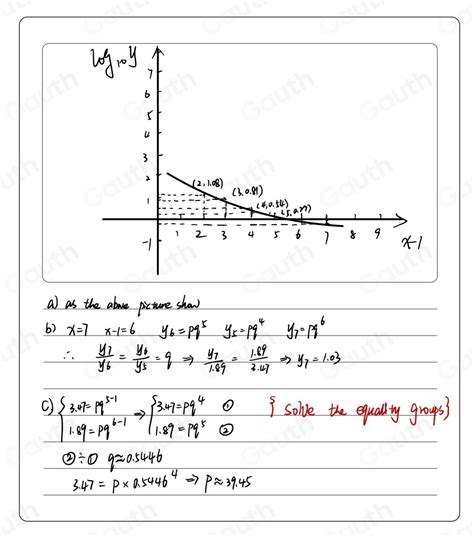 log₁₀y
7
6
5
4
3
2
1
-1
(2,1.08)
(3,0.81)
(4,0.54)
(5,0.27)
1 2 3 4 5 6 7 8 9
x-1
a) as the above picture show
b) x=7 x-1=6 y₆=pq⁵ y₅=pq⁴ y₇=pq⁶
∴ y₇/y₆ = y₆/y₅ = q ⇒ y₇/1.89 = 1.89/3.47 ⇒ y₇=1.03
c) { 3.47=pq⁵⁻¹ ⇒ { 3.47=pq⁴ ① { solve the equality groups}
1.89=pq⁶⁻¹ 1.89=pq⁵ ②
②÷① q≈0.5446
3.47 = p×0.5446⁴ ⇒ p≈39.45
Gauth